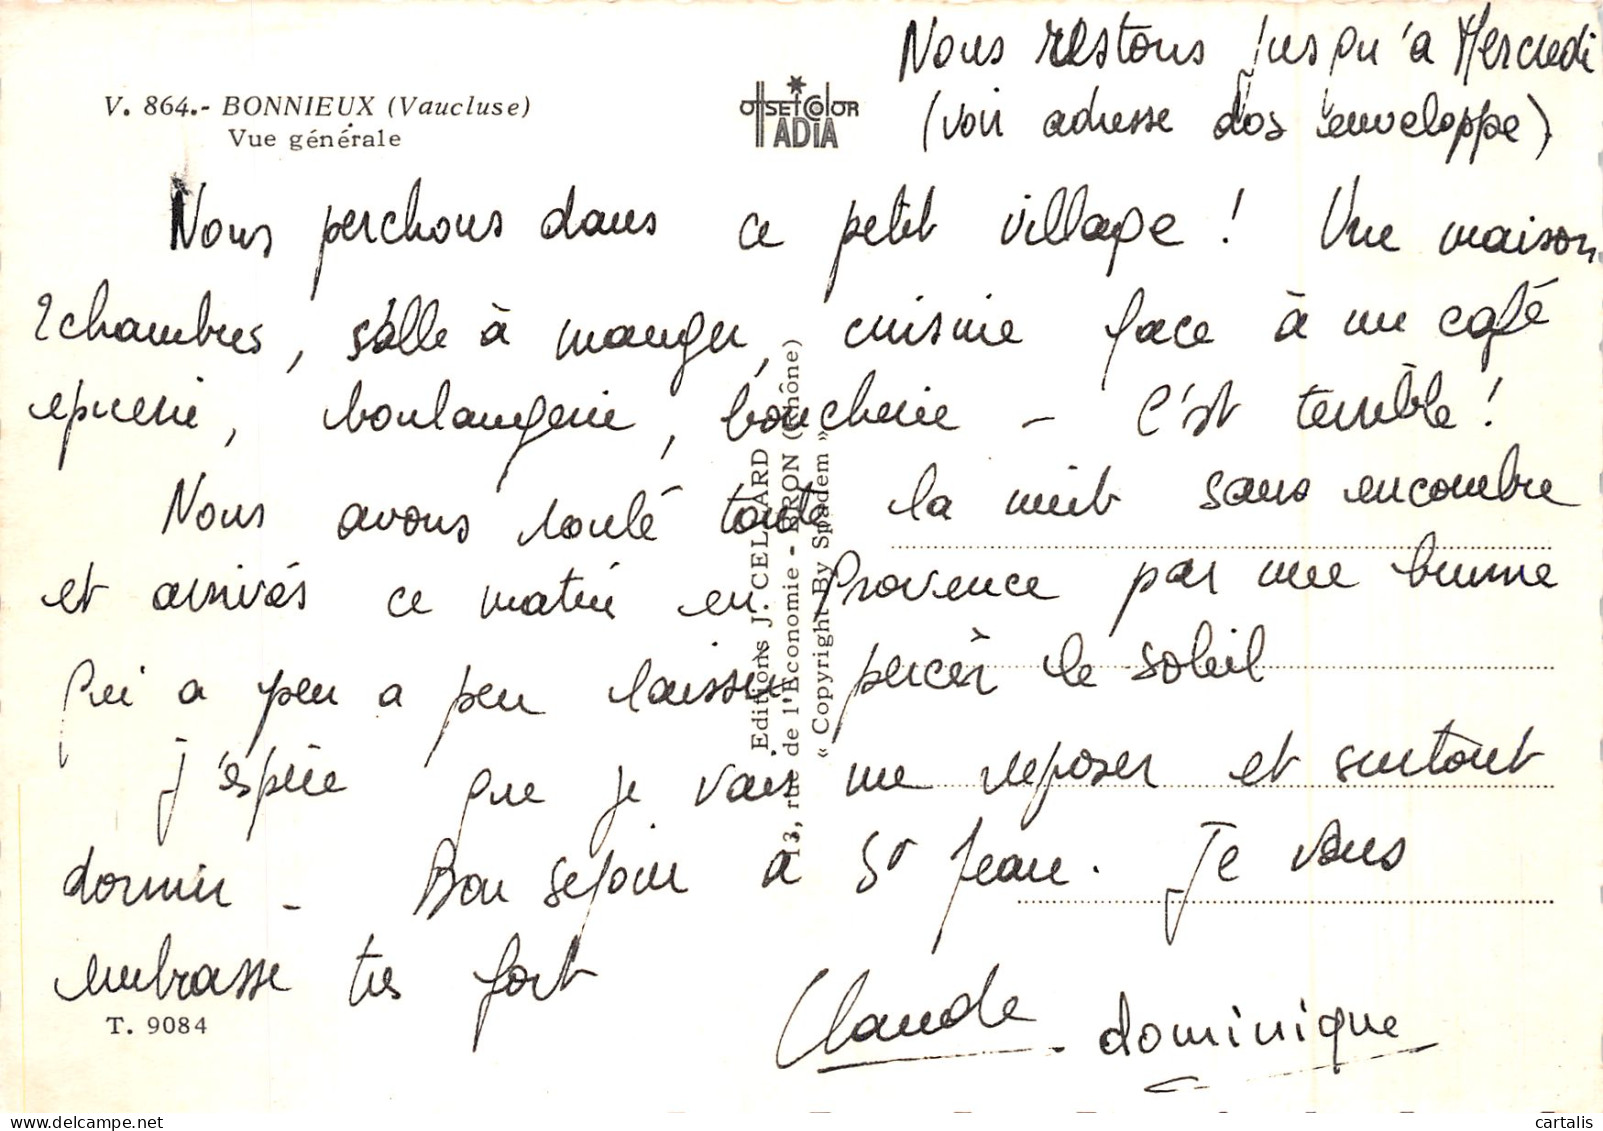 Nous restons jusqu'a Mercredi
(voir adresse dos enveloppe)
V. 864.- BONNIEUX (Vaucluse)
Vue générale
OffSEt COlOR
ADIA
Nous perchons dans ce petit village ! Une maison
2 chambres, salle à manger, cuisine face à un café
epicerie, boulangerie, boucherie - C'est terrible !
Nous avons roulé toute la nuit sans encombre
et arrivés ce matin en Provence par une brume
qui a peu a peu laisser percer le soleil
J'espère que je vais me reposer et surtout
dormir - Bon sejour a St Jean. Je vous
embrasse tres fort
Claude . dominique
T. 9084
Editions J. CELLARD
13, rue de l'Economie - BRON (Rhône)
« Copyright By Spadem »
cartalis